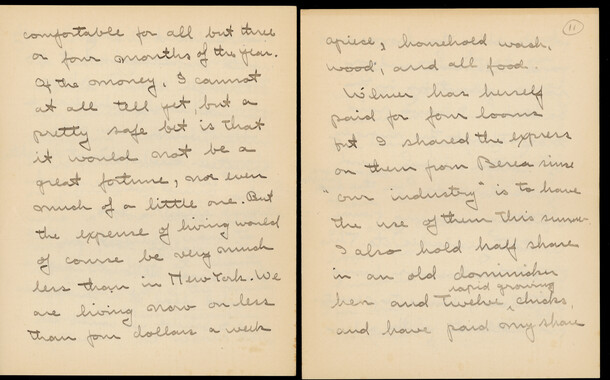 comfortable for all but three
or four months of the year.
Of the money, I cannot
at all tell yet, but a
pretty safe bet is that
it would not be a
great fortune, nor even
much of a little one. But
the expense of living would
of course be very much
less than in New York. We
are living now on less
than four dollars a week
11
apiece, household wash,
wood, and all food.
Wilmer has herself
paid for four looms
but I shared the express
on them from Berea since
"our industry" is to have
the use of them this summer
I also hold half share
in an old dominicker
rapid growing
hen and twelve chicks,
and have paid my share